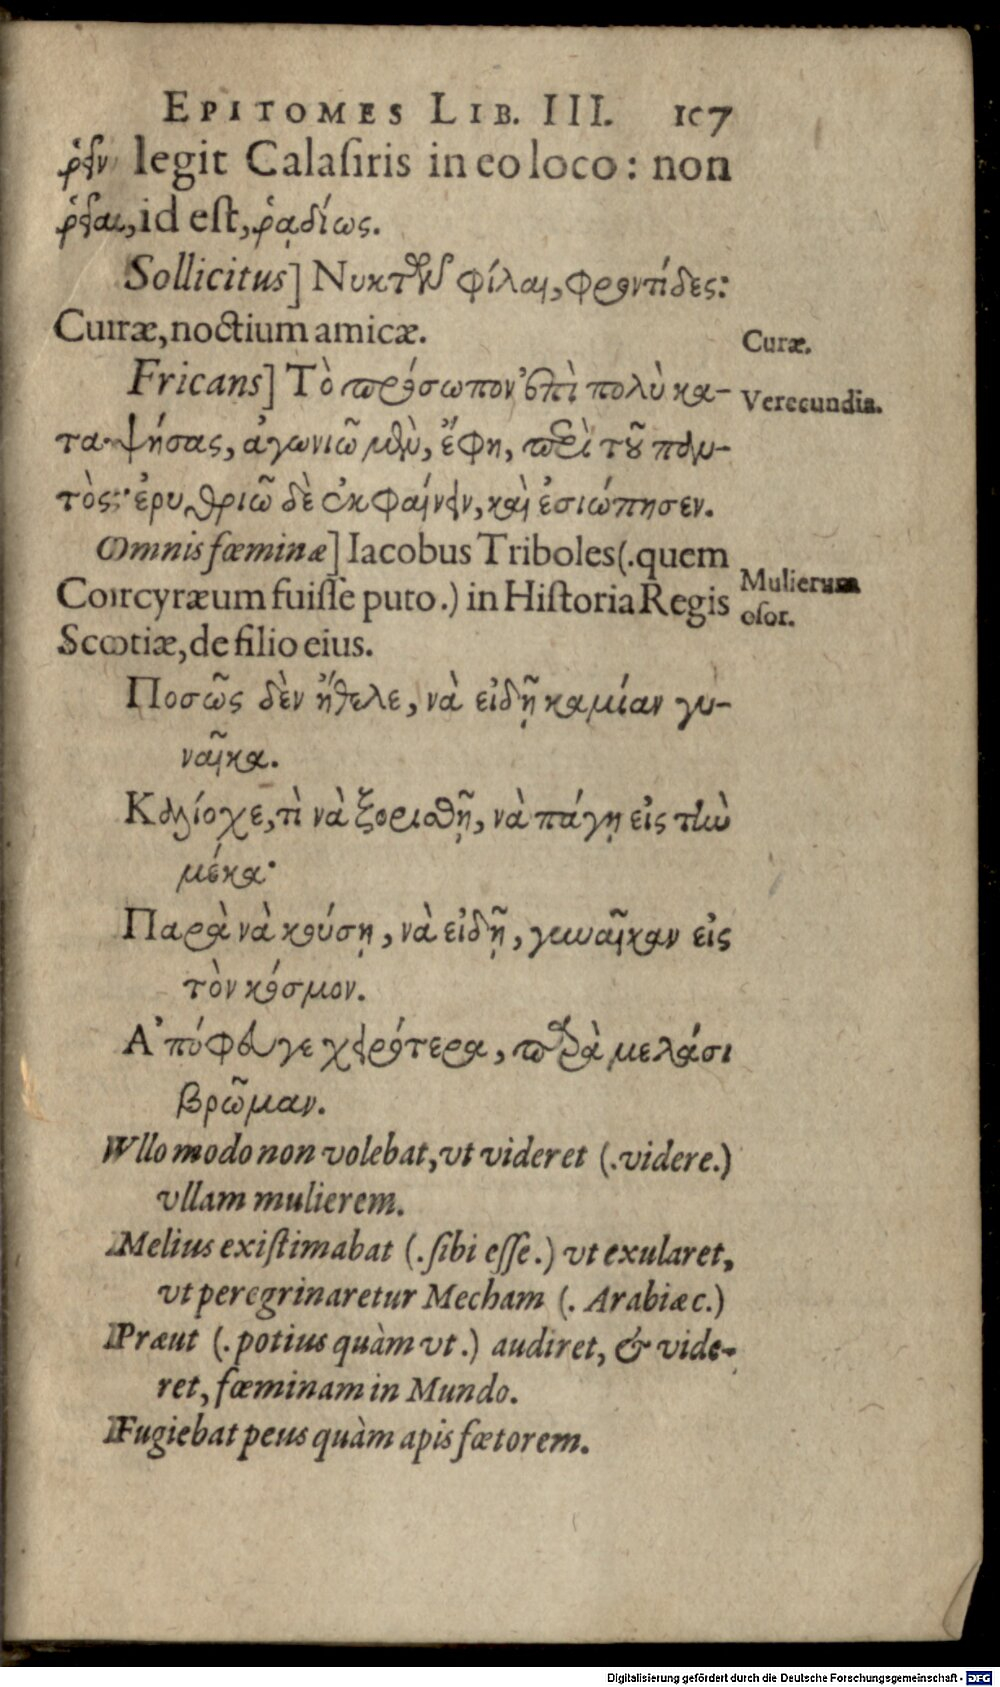 EPITOMES LIB. III. 107
ῥεῖν legit Calaſiris in eo loco: non
ῥεῖαι, id eſt, ῥᾳδίως.
Sollicitus] Νυκτῶν φίλαι, φροντίδες:
Curæ, noctium amicæ.
Curæ.
Fricans] Τὸ πρόσωπον ἐπὶ πολὺ κα-
Verecundia.
ταψήσας, ἀγωνιῶ μὲν, ἔφη, περὶ τοῦ παν-
τὸς· ἐρυθριῶ δὲ ἐκφαίνειν, καὶ ἐσιώπησεν.
Omnis fœminæ] Iacobus Triboles (.quem
Corcyræum fuiſſe puto.) in Hiſtoria Regis
Mulierum
oſor.
Scotiæ, de filio eius.
Ποσῶς δὲν ἤθελε, νὰ εἰδῇ καμίαν γυ-
ναῖκα.
Καλλίοχε, τὶ νὰ ξοριθῇ, νὰ πάγῃ εἰς τὴν
μέκα·
Παρὰ νὰ κούσῃ, νὰ εἰδῇ, γυναῖκαν εἰς
τὸν κόσμον.
Ἀπόφευγε χειρότερα, παρὰ μελάσι
βρῶμαν.
Vllo modo non volebat, vt videret (.videre.)
vllam mulierem.
Melius exiſtimabat (.ſibi eſſe.) vt exularet,
vt peregrinaretur Mecham (. Arabiæc.)
Præut (.potius quàm vt.) audiret, & vide-
ret, fœminam in Mundo.
Fugiebat peus quàm apis fœtorem.
Digitalisierung gefördert durch die Deutsche Forschungsgemeinschaft - DFG